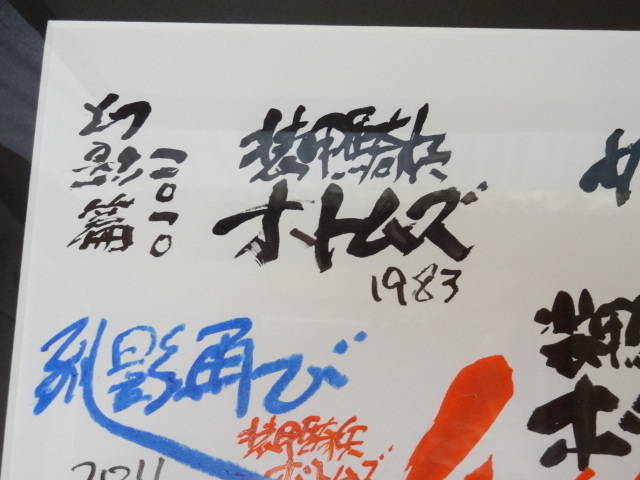 幻影篇
2010
装甲騎兵
ボトムズ
1983
孤影再び
2011
装甲騎兵
ボトムズ
装甲騎
ボ